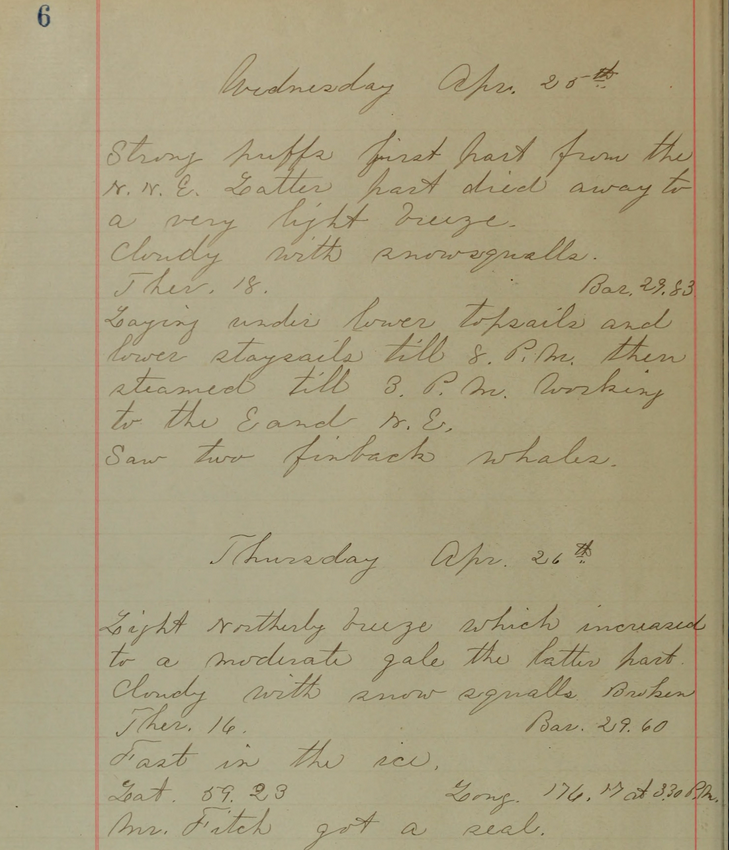 6
Wednesday Apr. 25th
Strong puffs first part from the
N. N. E. Latter part died away to
a very light breeze.
Cloudy with snowsqualls.
Ther. 18. Bar. 29.83
Laying under lower topsails and
lower staysails till 8. P.M. then
steamed till 3. P.M. Working
to the E and N.E.
Saw two finback whales.
Thursday Apr. 26th
Light Northerly breeze which increased
to a moderate gale the latter part.
Cloudy with snow squalls Broken
Ther. 16. Bar. 29.60
Fast in the ice.
Lat. 59.23 Long. 176.17 at 3.30 P.M.
Mr. Fitch got a seal.